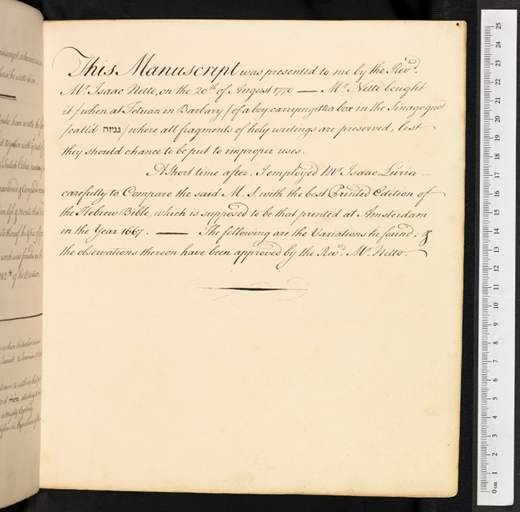 This Manuscript was presented to me by the Revd.
Mr. Isaac Netto, on the 20th of August 1770 — Mr. Netto bought
it /when at Tetuan in Barbary/ of a boy carrying it to a box in the Sinagogue
/call'd גניזה/ where all fragments of holy writings are preserved, lest
they should chance to be put to improper uses.
A Short time after, I employed Mr. Isaac Luria
carefully to Compare the said M.S. with the best Printed Edition of
the Hebrew Bible, which is supposed to be that printed at Amsterdam
in the Year 1667. — The following are the Variations he found, &
the observations thereon have been approved by the Revd. Mr. Netto.